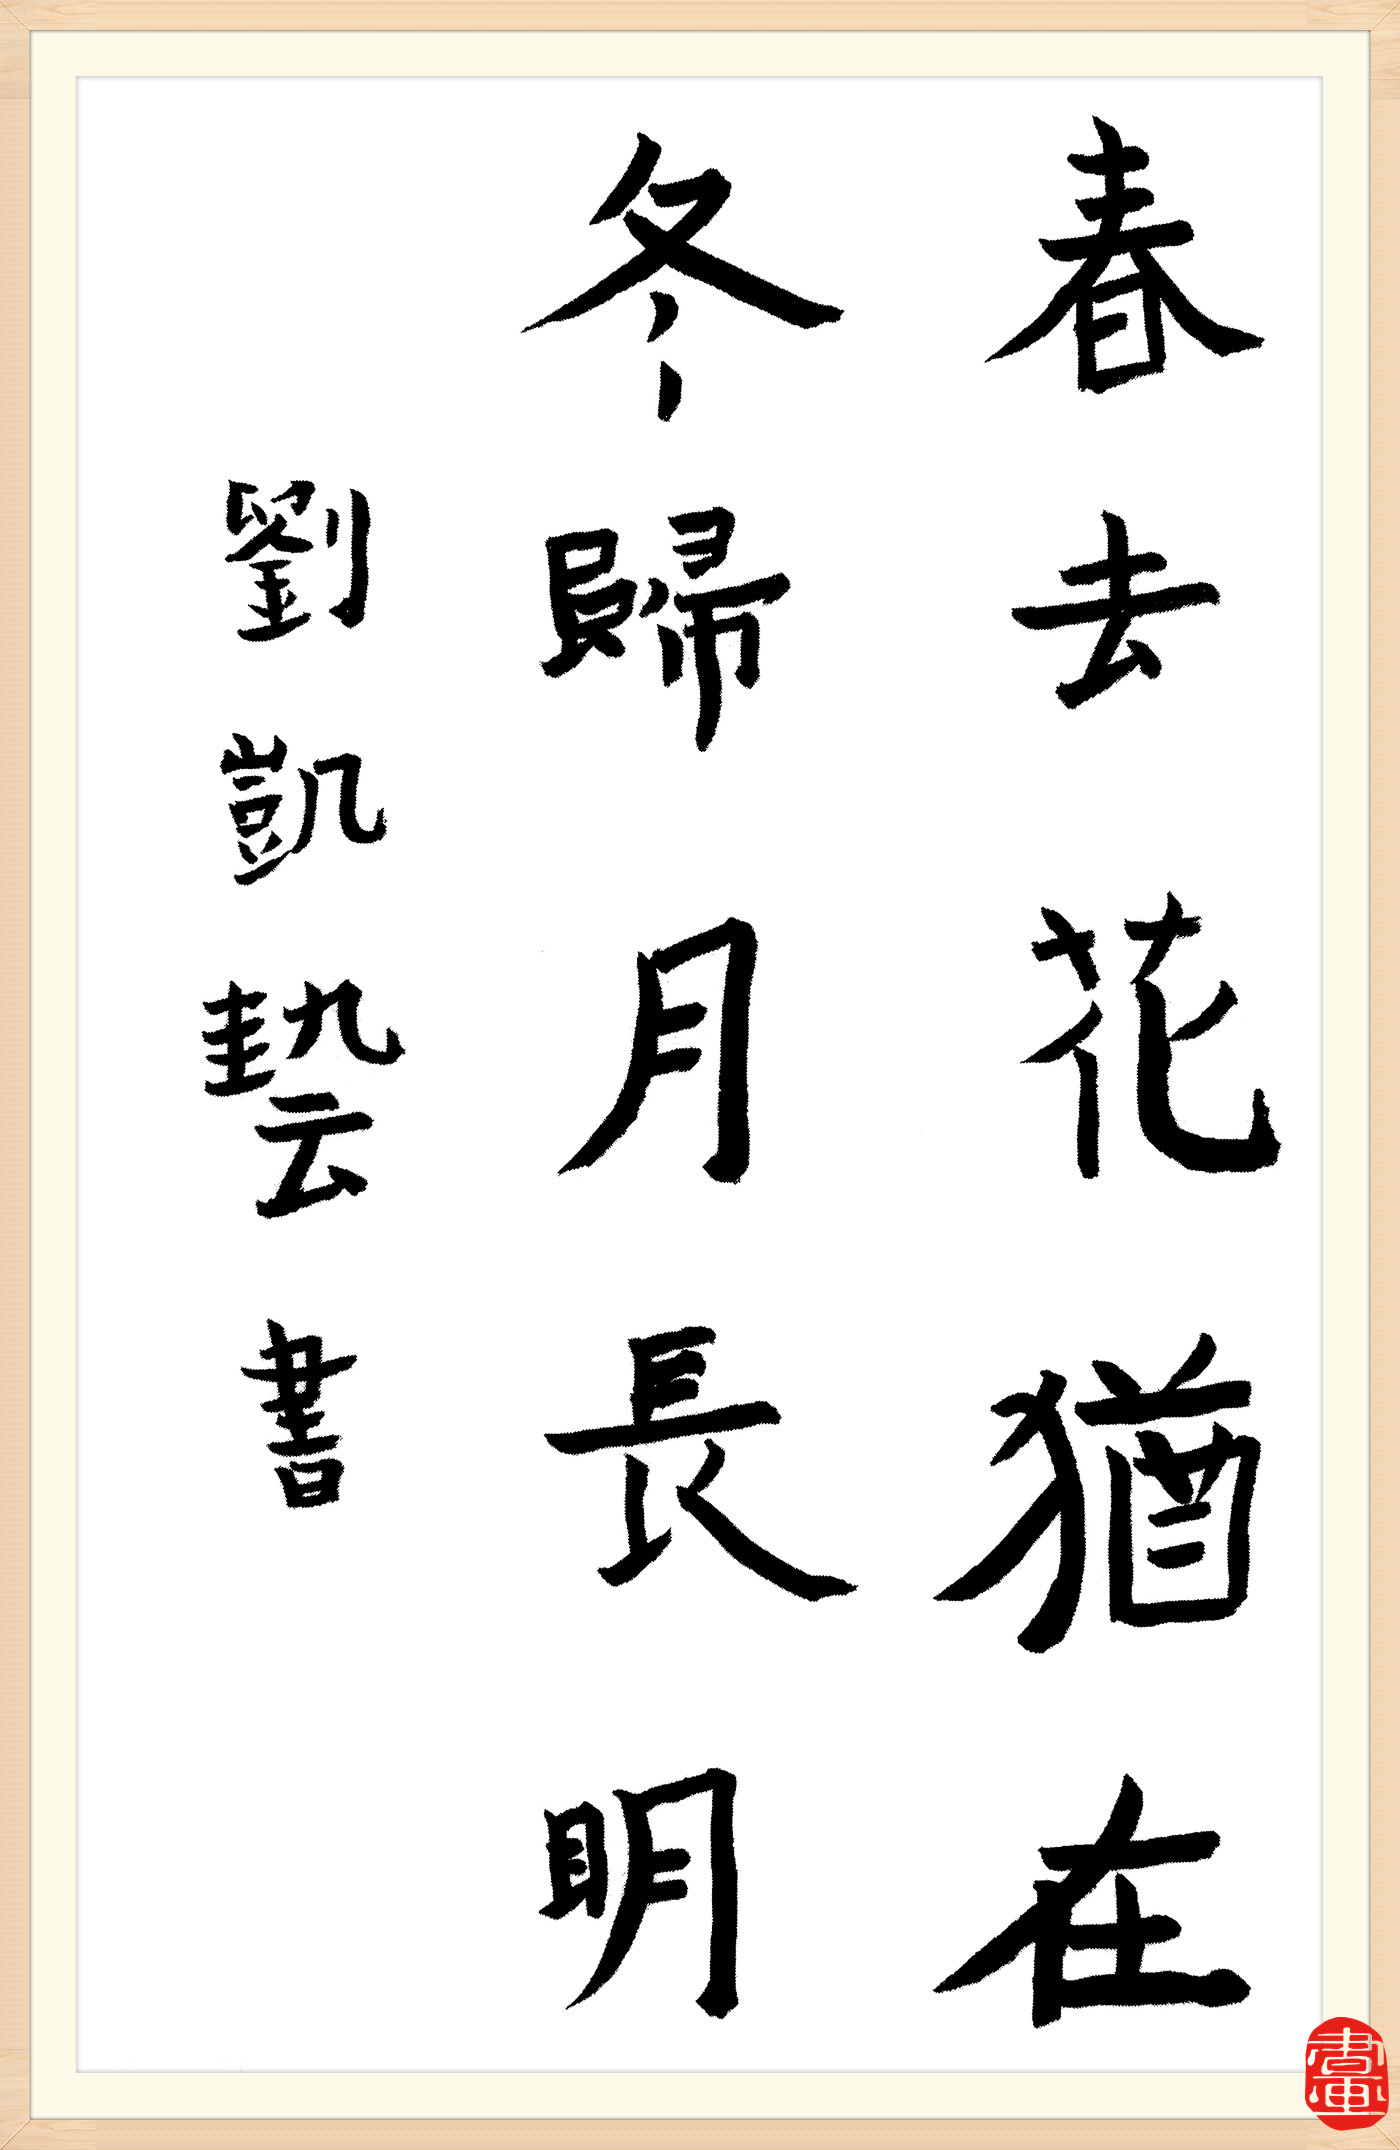 春去花猶在
冬歸月長明
劉凱蓺書
書畫